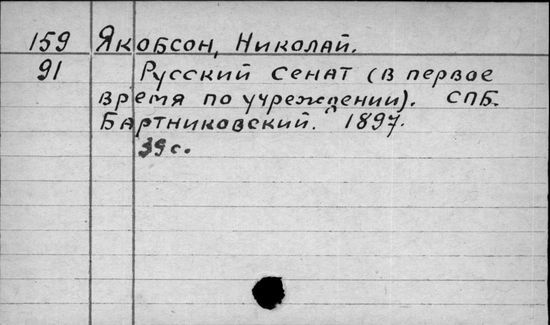 159 Якобсон, Николай.
91 Русский сенат (в первое
время по учреждении). СПБ.
Бартниковский. 1897.
39 с.